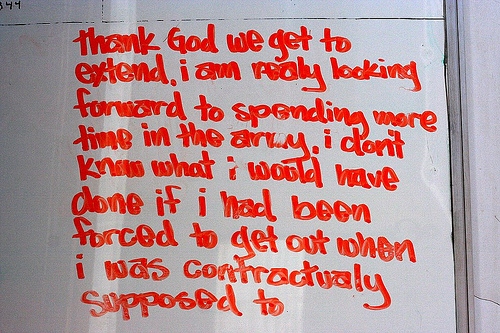 344
thank God we get to
extend. i am realy looking
forward to spending more
time in the army. i don't
know what i would have
done if i had been
forced to get out when
i was contractualy
supposed to